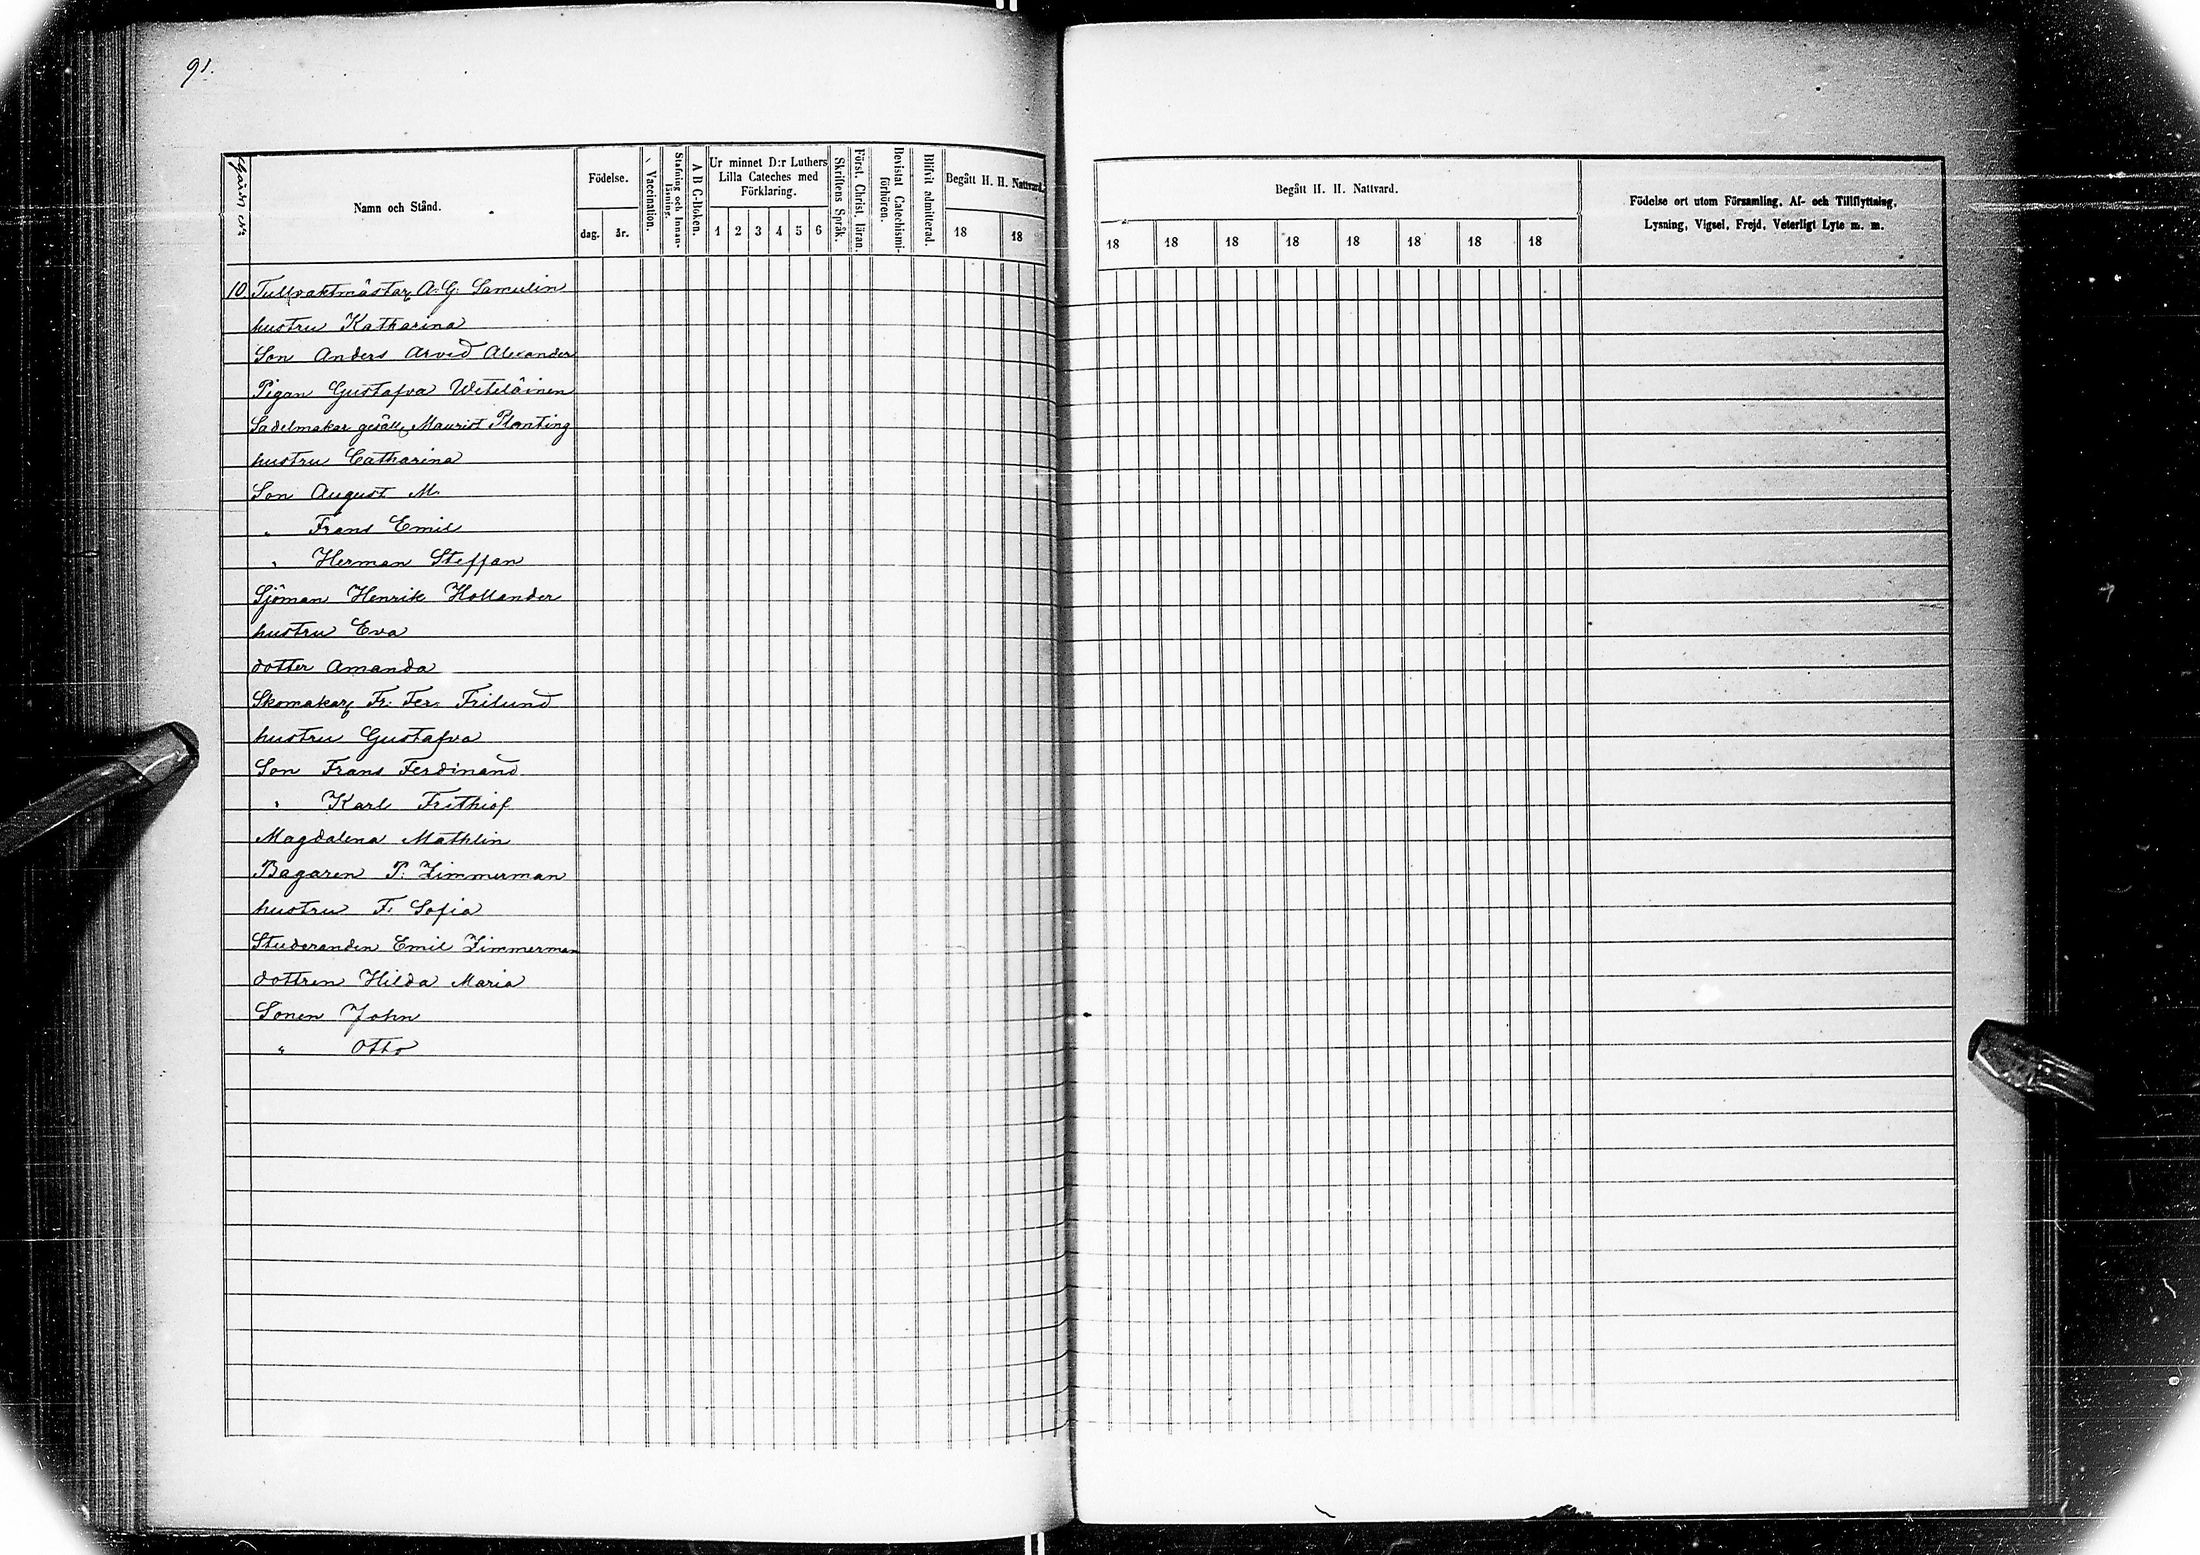 91.
Gårds No
Namn och Stånd.
Födelse.
dag. år.
Vaccination.
Stafning och Innanläsning.
A B C-Boken.
Ur minnet D:r Luthers
Lilla Cateches med
Förklaring.
1 2 3 4 5 6
Skriftens Språk.
Först. Christ. läran.
Bevistat Catechismi-
förhören.
Blifvit admitterad.
Begått H. H. Nattvard.
18 18
Begått H. H. Nattvard.
18 18 18 18 18 18 18 18
Födelse ort utom Församling, Af- och Tillflyttning,
Lysning, Vigsel, Frejd, Veterligt Lyte m. m.
10 Tullvaktmästar A. G. Samulin
hustru Katharina
Son Anders Arvid Alexander
Pigan Gustafva Weteläinen
Sadelmakar gesäll Maurist Planting
hustru Catharina
Son August M.
" Frans Emil
" Herman Steffan
Sjöman Henrik Hollander
hustru Eva
dotter Amanda
Skomakar Fr. Fer. Frilund
hustru Gustafva
Son Frans Ferdinand
" Karl Frithiof
Magdalena Mathlin
Bagaren P. Zimmerman
hustru F. Sofia
Studeranden Emil Zimmerman
dottren Hilda Maria
Sonen John
" Otto